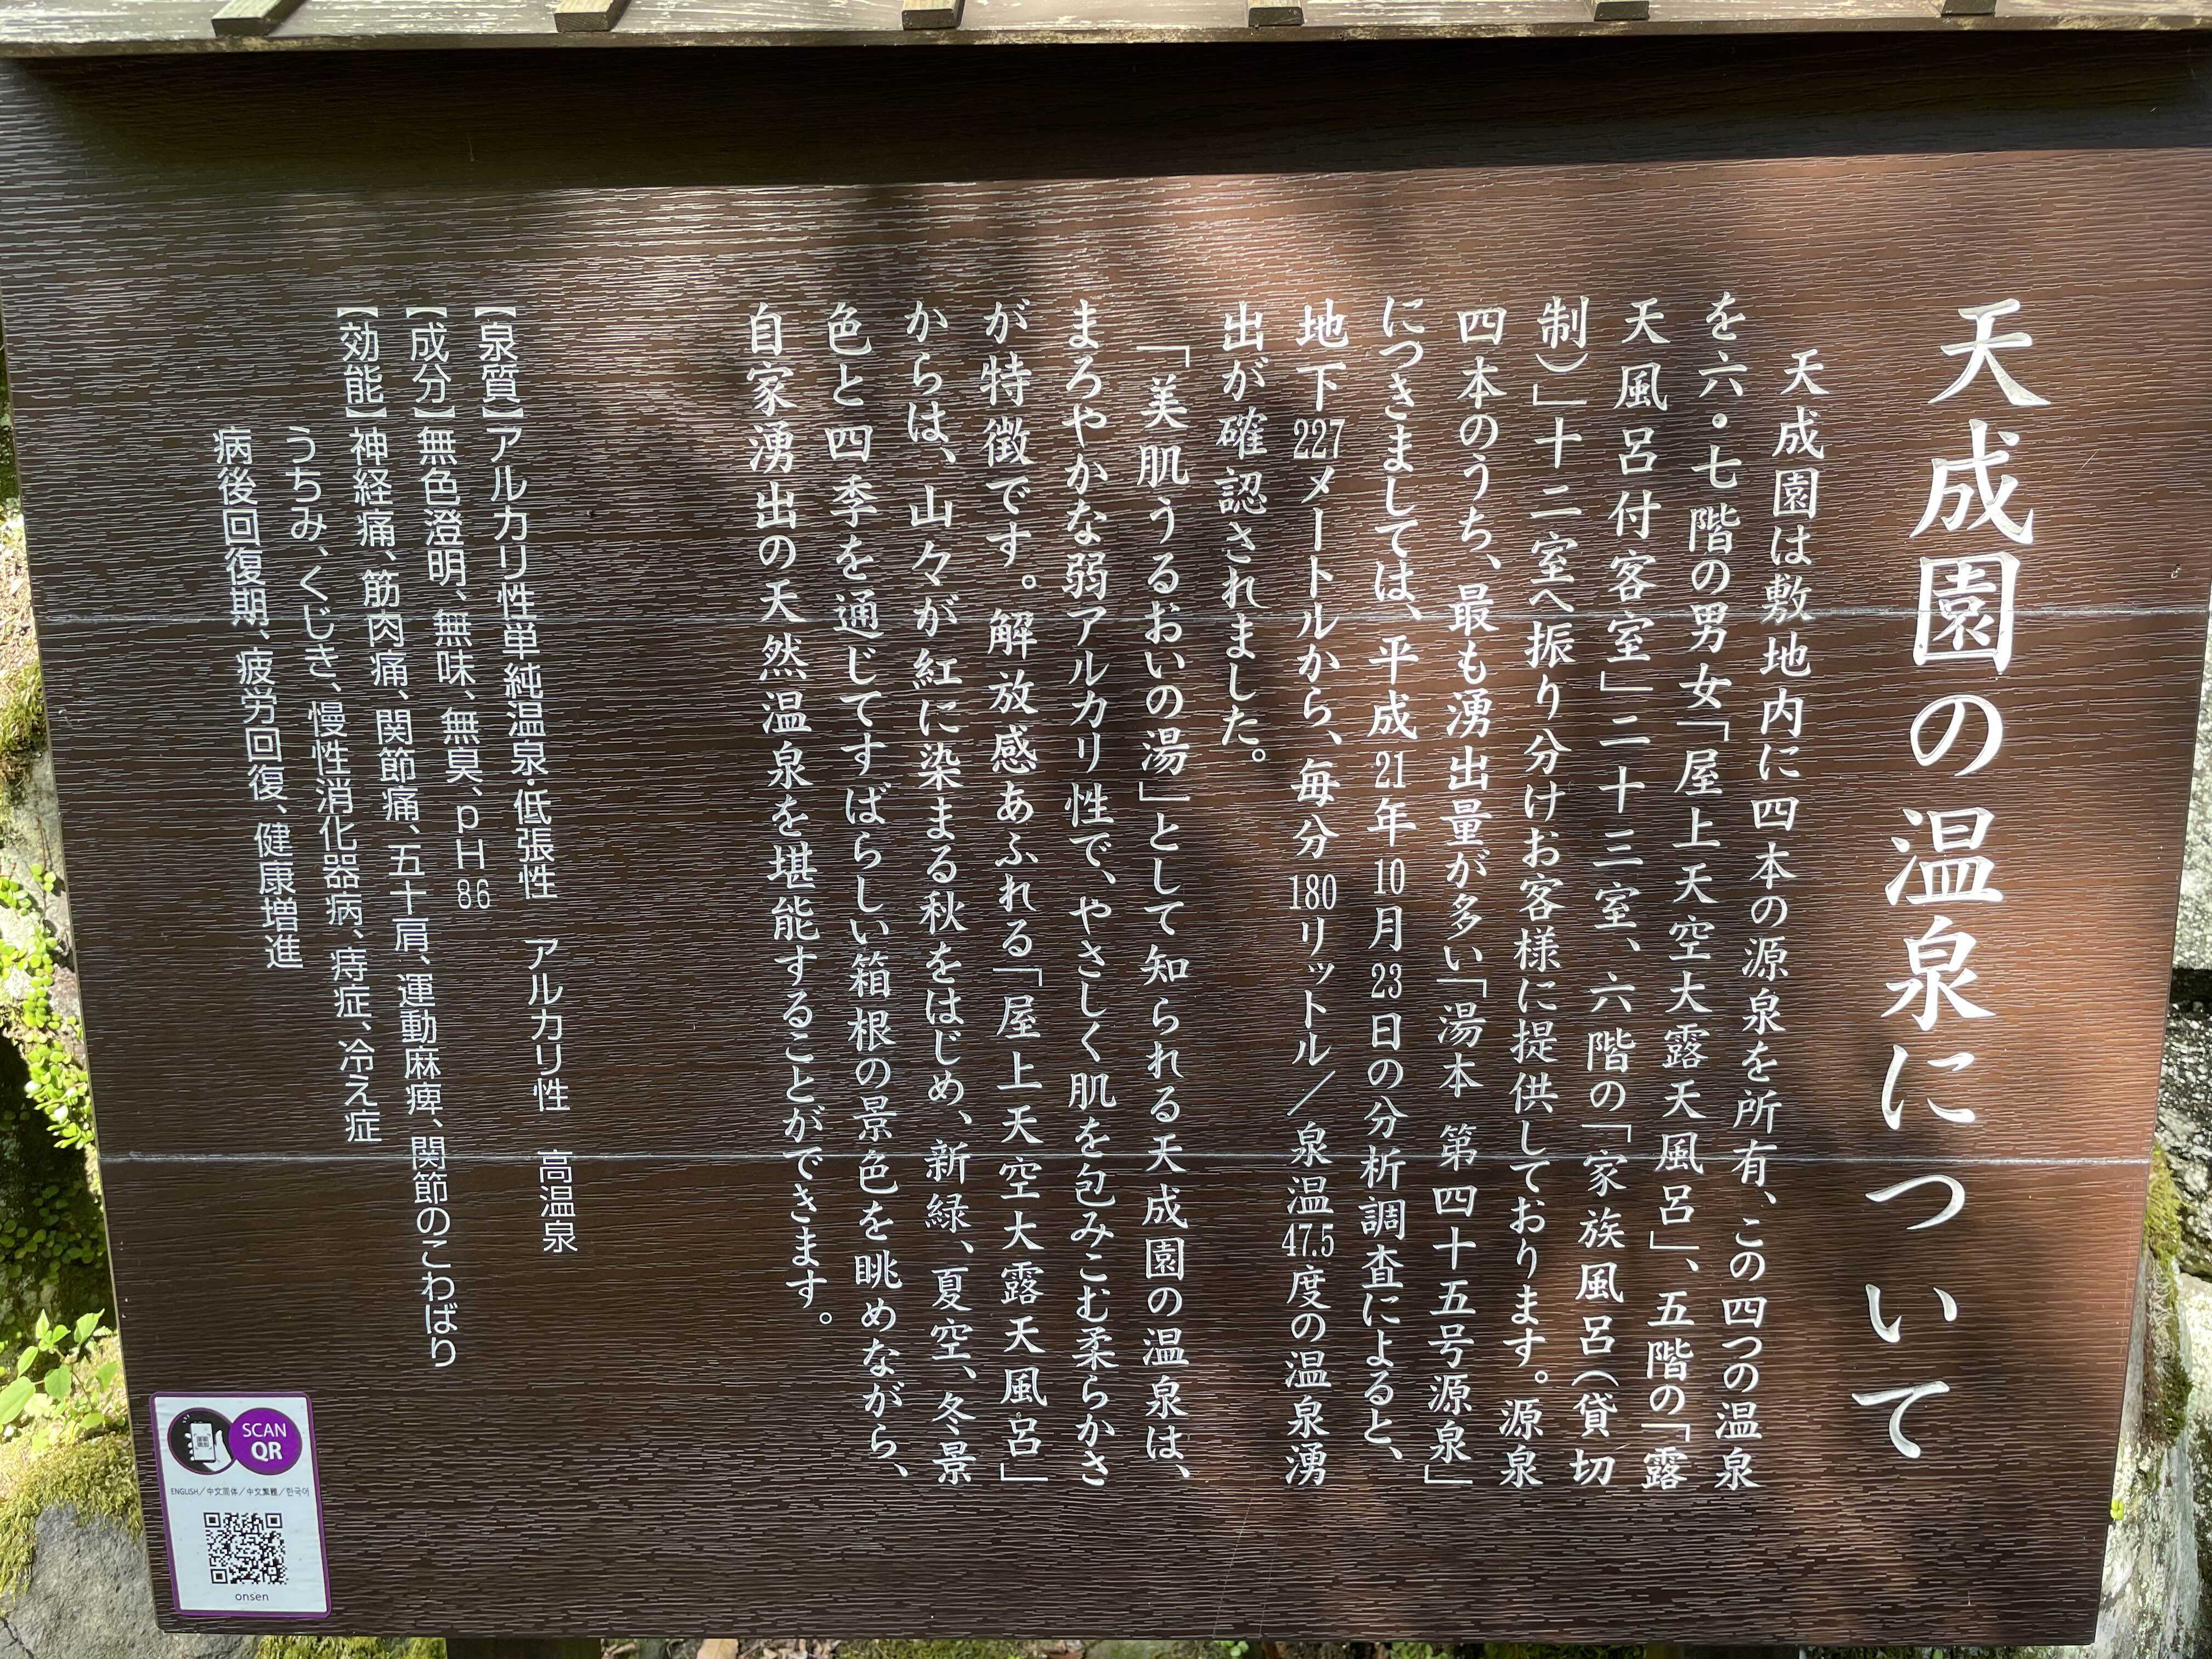 天成園の温泉について
天成園は敷地内に四本の源泉を所有、この四つの温泉
を六・七階の男女「屋上天空大露天風呂」、五階の「露
天風呂付客室」二十三室、六階の「家族風呂（貸切
制）」十二室へ振り分けお客様に提供しております。源泉
四本のうち、最も湧出量が多い「湯本 第四十五号源泉」
につきましては、平成21年10月23日の分析調査によると、
地下227メートルから、毎分180リットル／泉温47.5度の温泉湧
出が確認されました。
「美肌うるおいの湯」として知られる天成園の温泉は、
まろやかな弱アルカリ性で、やさしく肌を包みこむ柔らかさ
が特徴です。解放感あふれる「屋上天空大露天風呂」
からは、山々が紅に染まる秋をはじめ、新緑、夏空、冬景
色と四季を通じてすばらしい箱根の景色を眺めながら、
自家湧出の天然温泉を堪能することができます。
【泉質】アルカリ性単純温泉・低張性 アルカリ性 高温泉
【成分】無色澄明、無味、無臭、pH 86
【効能】神経痛、筋肉痛、関節痛、五十肩、運動麻痺、関節のこわばり
うちみ、くじき、慢性消化器病、痔症、冷え症
病後回復期、疲労回復、健康増進
SCAN
QR
ENGLISH／中文简体／中文繁體／한국어
onsen